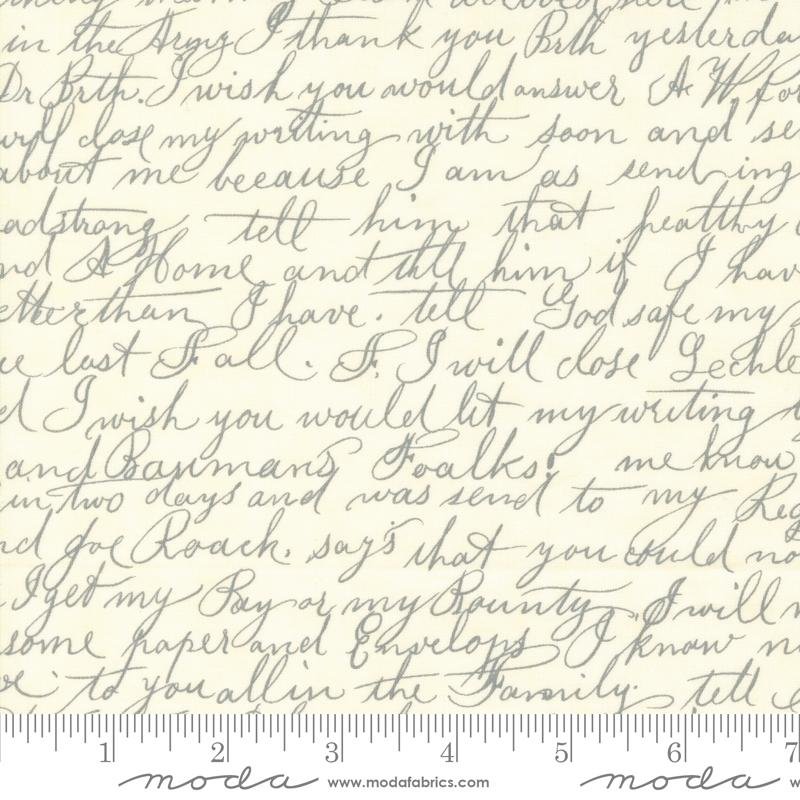 in the Army I thank you Brth yesterda
Dr Brth. I wish you would answer A W. for
will close my writing with soon and se
about me beecause I am as send ing
adstrong tell him that healthy
nd A Home and till him if I hav
etter than I have. tell God safe my
ue last Fall. F. I will close Lechle
d I wish you would let my writing
and Baumans Foalks. me know
in two days and was send to my Reg
nd Joe Roack. say's that you could no
I get my Pay or my Bounty. I will
some paper and Envelops I know n
to you all in the Family. tell
1 2 3 4 5 6 7
moda www.modafabrics.com moda w